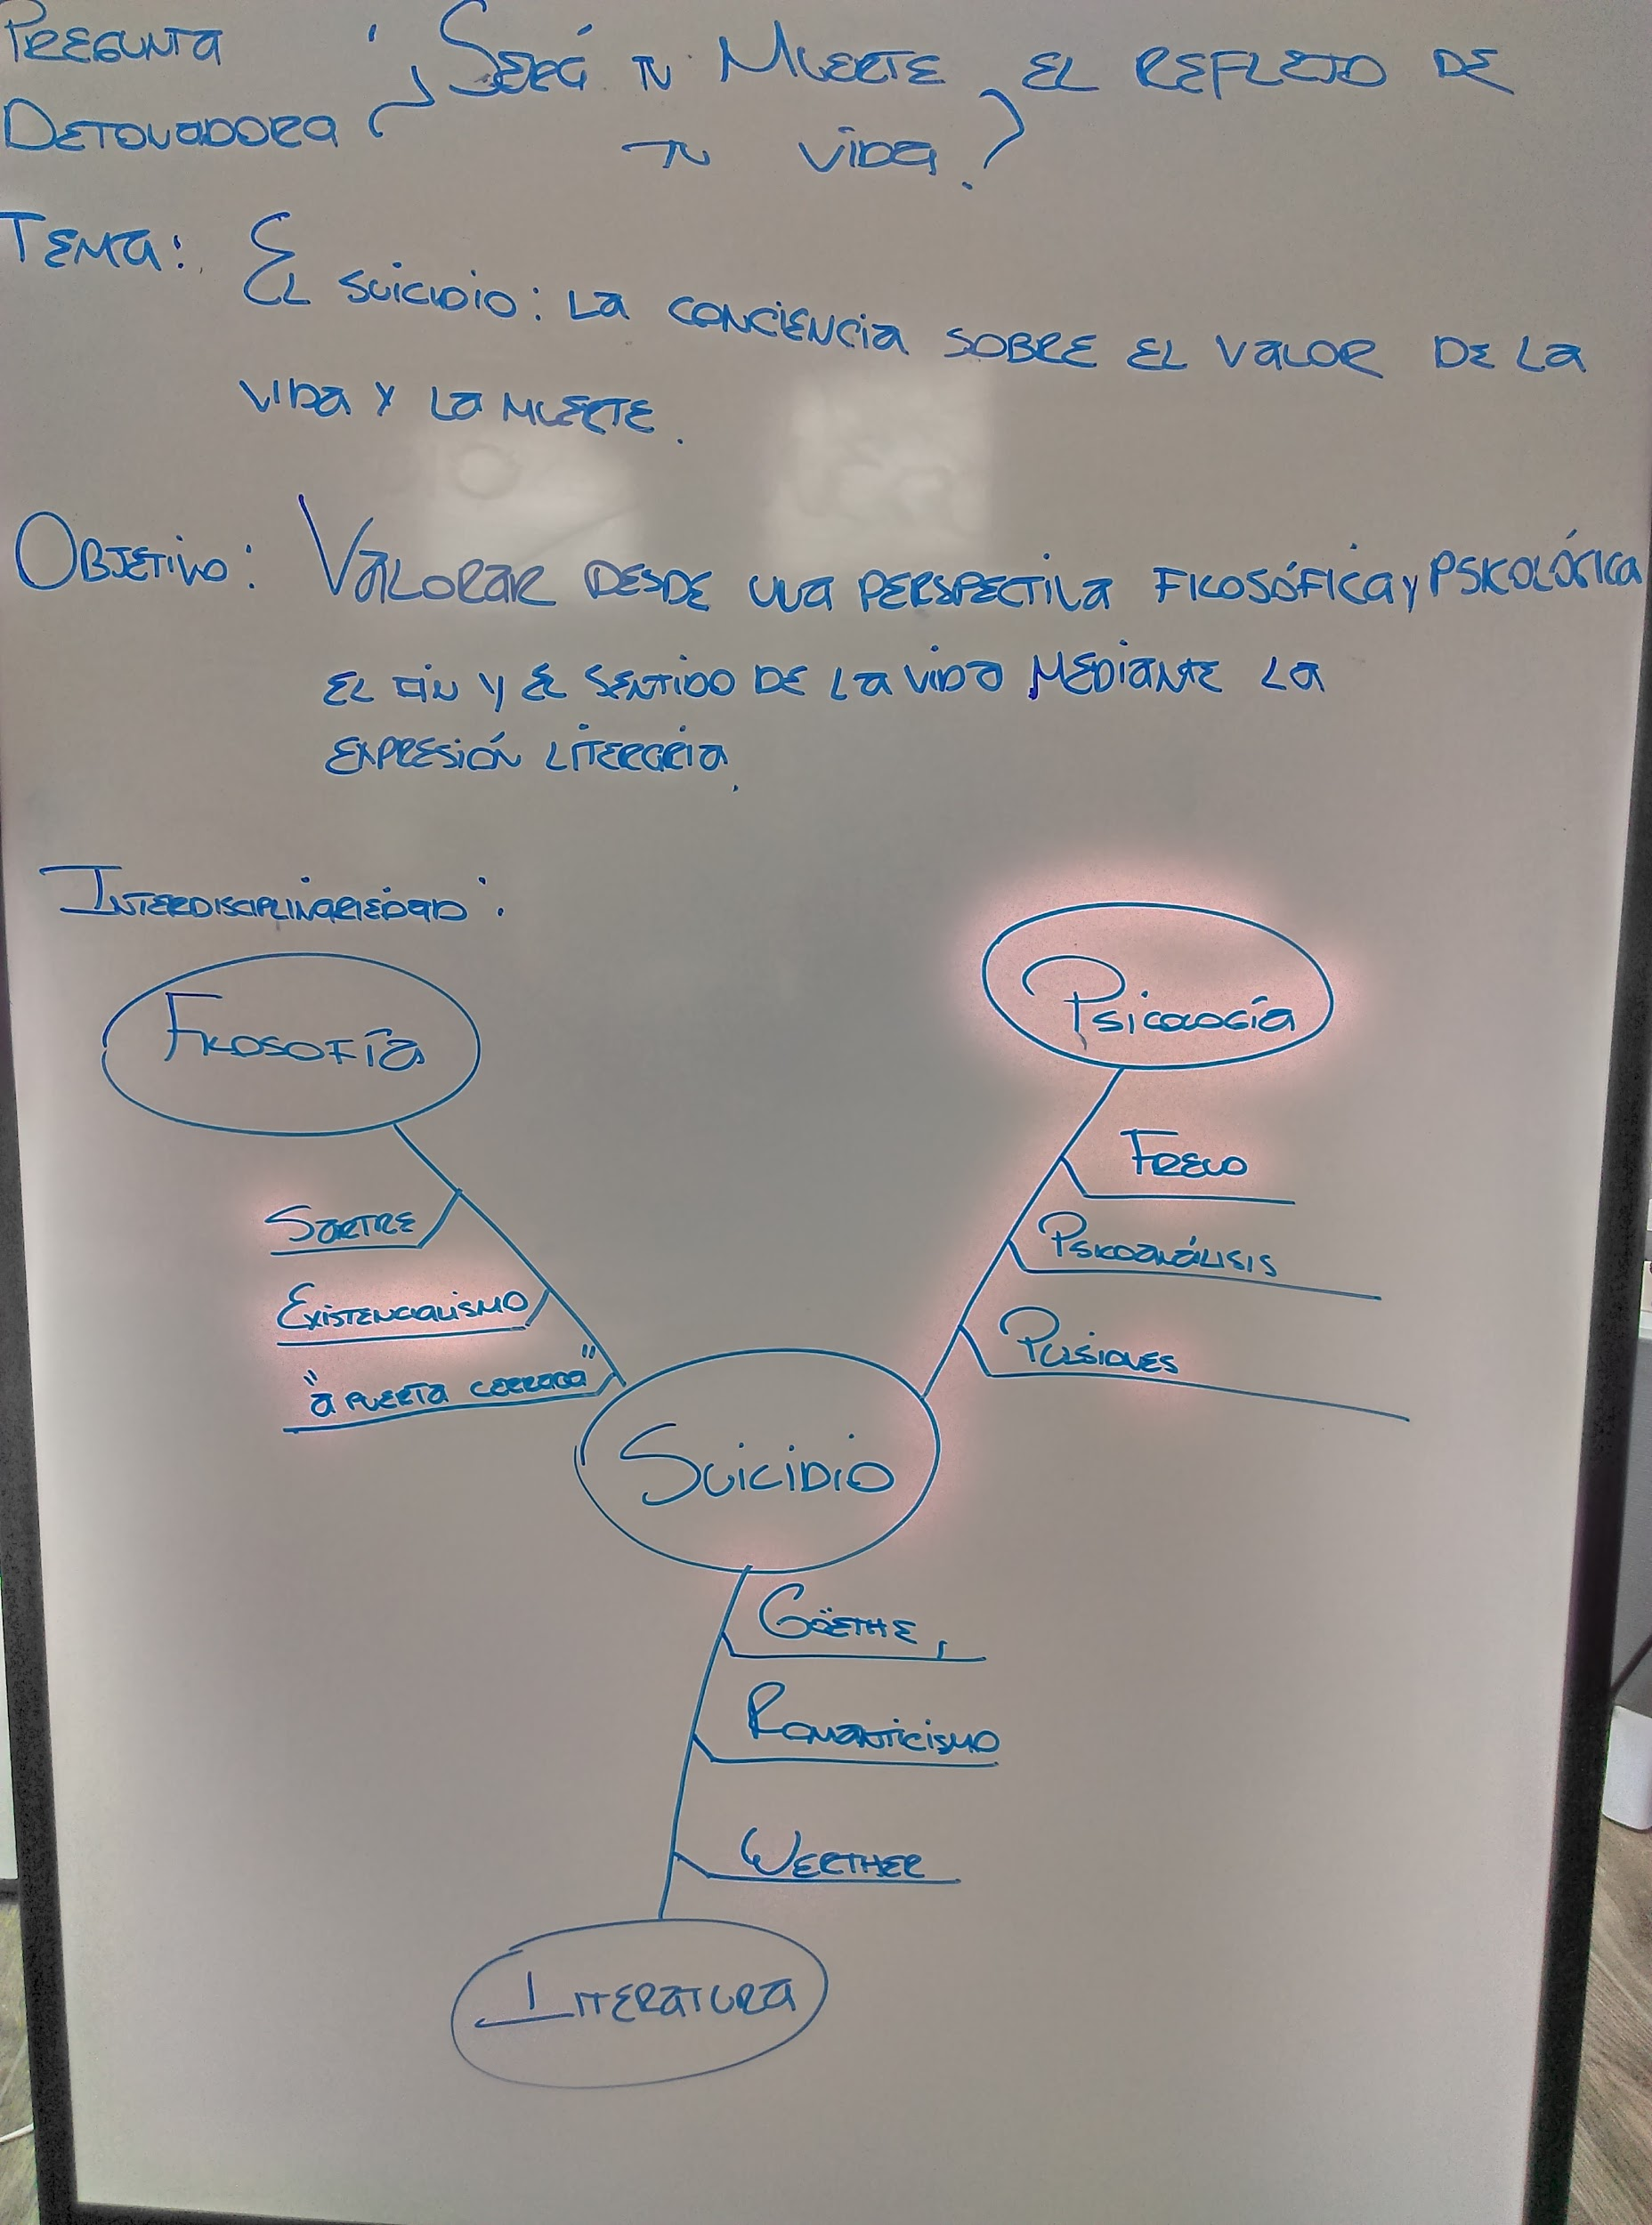 Pregunta
Detonadora ¿Será tu muerte, el reflejo de
tu vida?
Tema: El suicidio: la conciencia sobre el valor de la
vida y la muerte.
Objetivo: Valorar desde una perspectiva filosófica y psicológica
el fin y el sentido de la vida mediante la
expresión literaria.
Interdisciplinariedad:
Filosofía
Sartre
Existencialismo
"a puerta cerrada"
Psicología
Freud
Psicoanálisis
Pulsiones
Suicidio
Göethe,
Romanticismo
Werther
Literatura